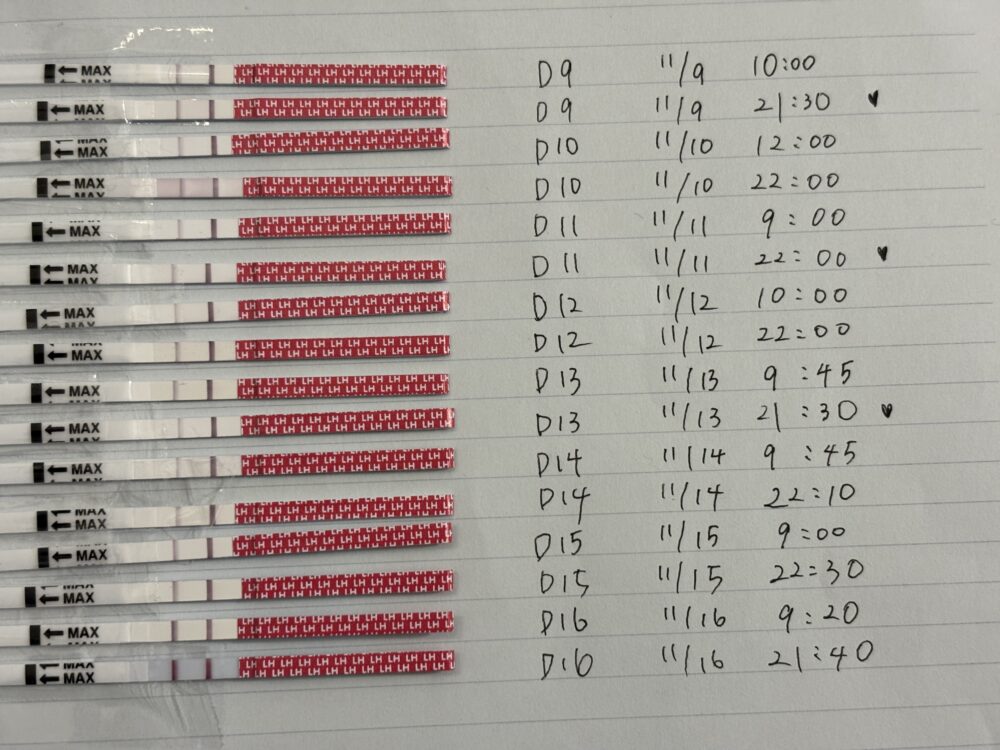 MAX LH LH LH LH LH LH LH LH LH LH LH D9 11/9 10:00
MAX LH LH LH LH LH LH LH LH LH LH LH D9 11/9 21:30 ♥
MAX LH LH LH LH LH LH LH LH LH LH LH D10 11/10 12:00
MAX LH LH LH LH LH LH LH LH LH LH LH D10 11/10 22:00
MAX LH LH LH LH LH LH LH LH LH LH LH D11 11/11 9:00
MAX LH LH LH LH LH LH LH LH LH LH LH D11 11/11 22:00 ♥
MAX LH LH LH LH LH LH LH LH LH LH LH D12 11/12 10:00
MAX LH LH LH LH LH LH LH LH LH LH LH D12 11/12 22:00
MAX LH LH LH LH LH LH LH LH LH LH LH D13 11/13 9:45
MAX LH LH LH LH LH LH LH LH LH LH LH D13 11/13 21:30 ♥
MAX LH LH LH LH LH LH LH LH LH LH LH D14 11/14 9:45
MAX LH LH LH LH LH LH LH LH LH LH LH D14 11/14 22:10
MAX LH LH LH LH LH LH LH LH LH LH LH D15 11/15 9:00
MAX LH LH LH LH LH LH LH LH LH LH LH D15 11/15 22:30
MAX LH LH LH LH LH LH LH LH LH LH LH D16 11/16 9:20
MAX LH LH LH LH LH LH LH LH LH LH LH D16 11/16 21:40